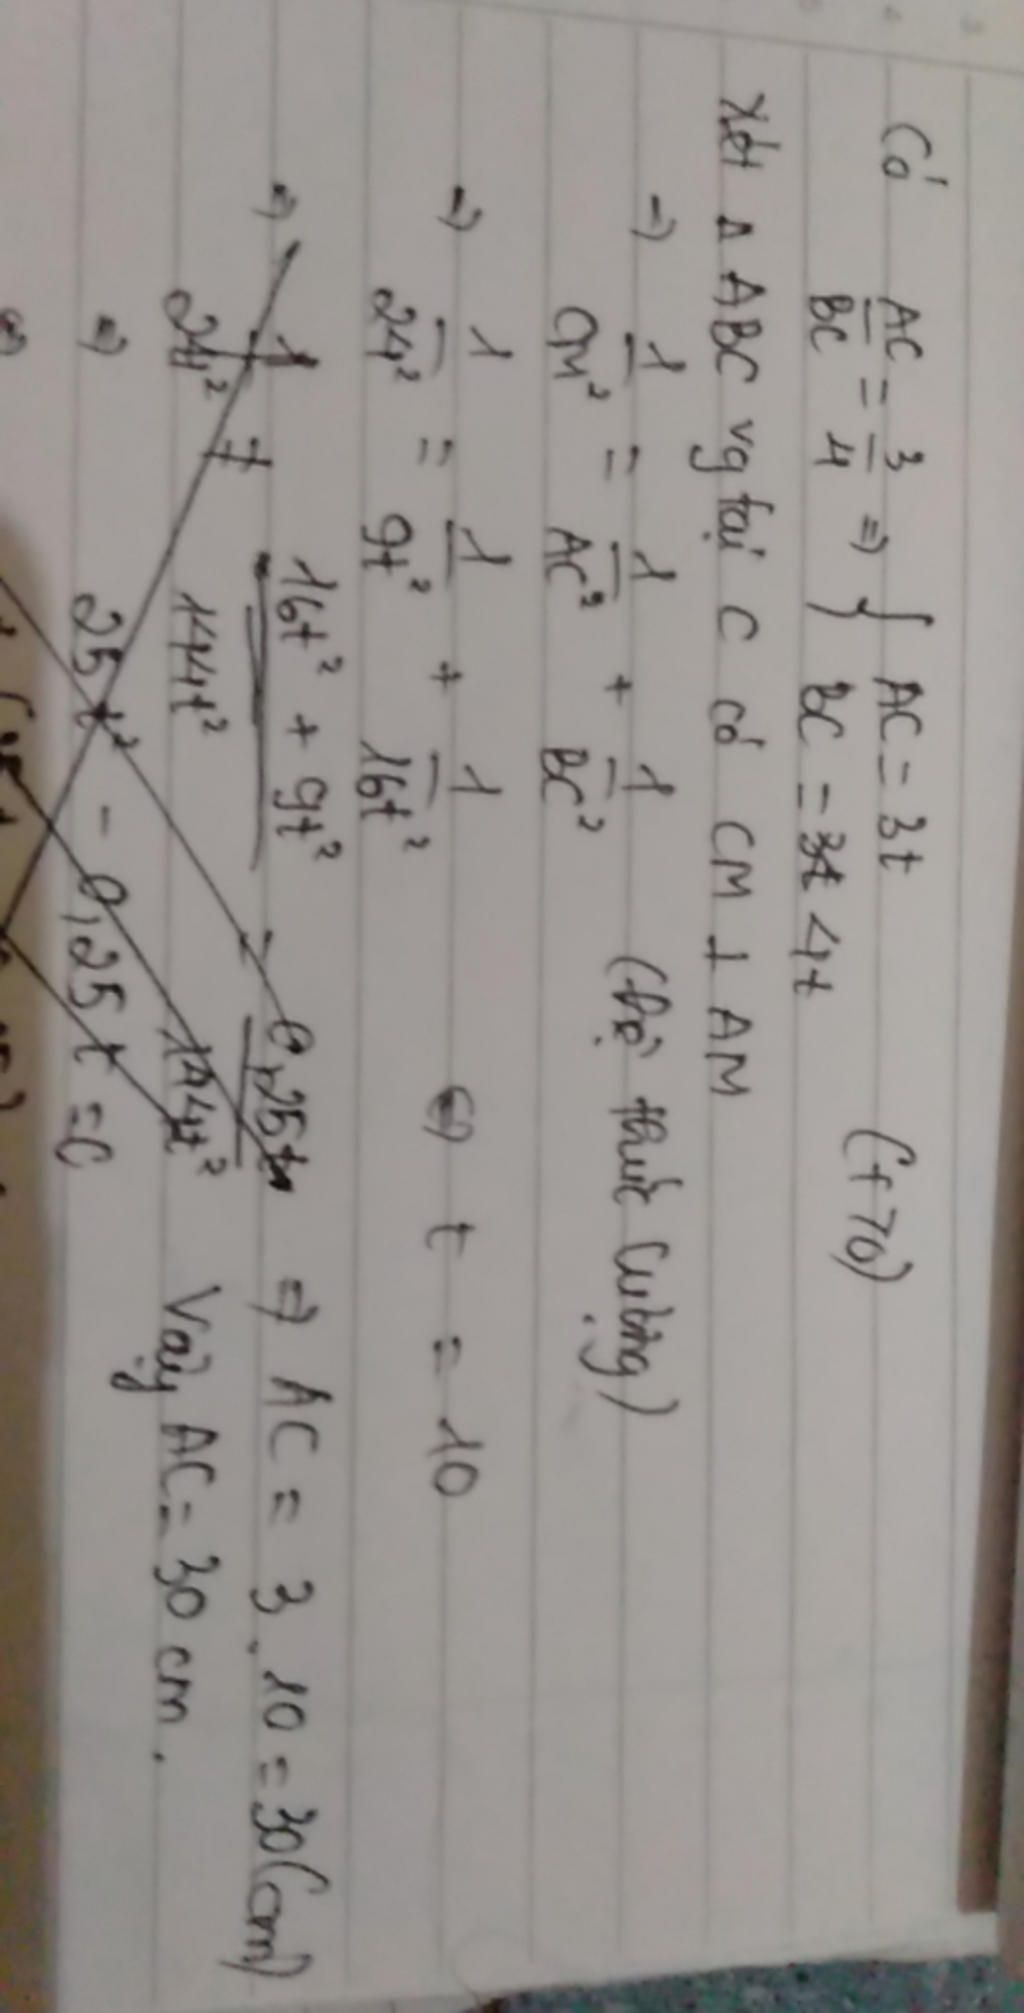 Có AC/BC = 3/4 => { AC = 3t
BC = 3t 4t (t>0)
Xét Δ ABC vg tại C có CM ⊥ AM
=> 1/CM² = 1/AC² + 1/BC² (hệ thức lượng)
=> 1/24² = 1/9t² + 1/16t² <=> t = 10
=> 1/24² = 16t² + 9t²/144t² = 0,25t/144t² => AC = 3.10 = 30(cm)
=> 25t² - 0,25t = 0 Vậy AC = 30 cm.